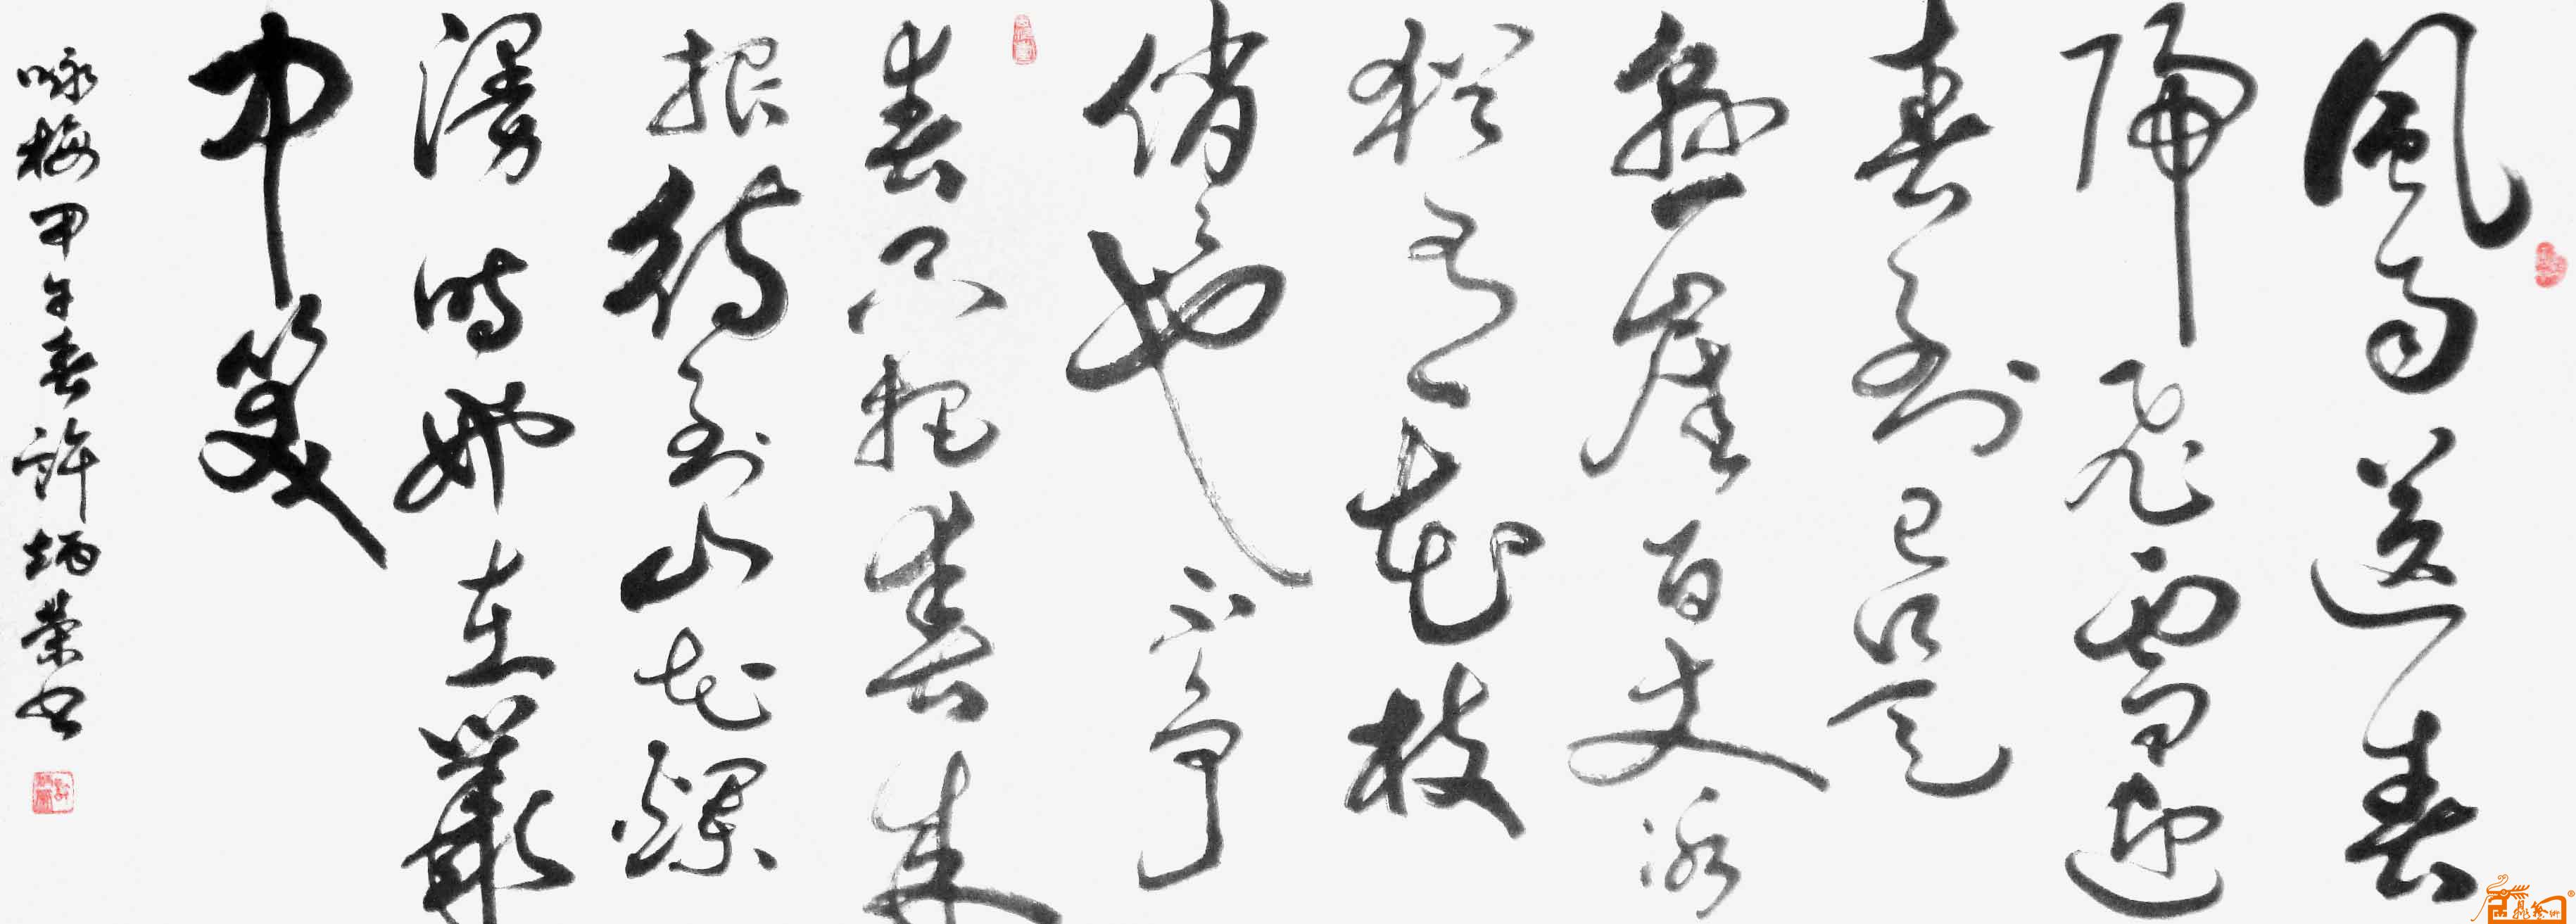 風雨送春
歸飛雪迎
春到已是
懸崖百丈冰
猶有花枝
俏〻也不爭
春只把春来
报待到山花爛
漫時她在叢
中笑
咏梅甲午春許炳荣书